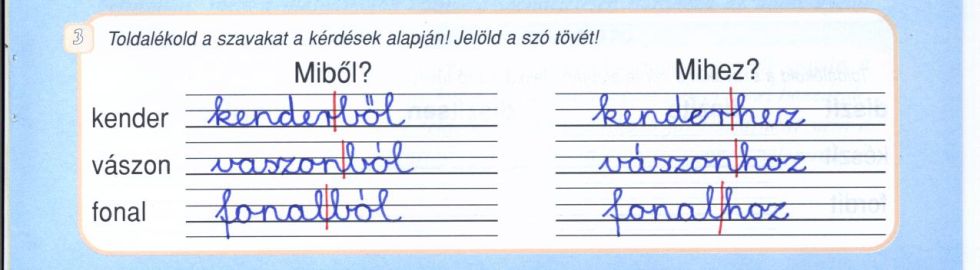 3 Toldalékold a szavakat a kérdések alapján! Jelöld a szó tövét!
Miből? Mihez?
kender kender|ből kender|hez
vászon vaszon|ból vászon|hoz
fonal fonal|ból fonal|hoz